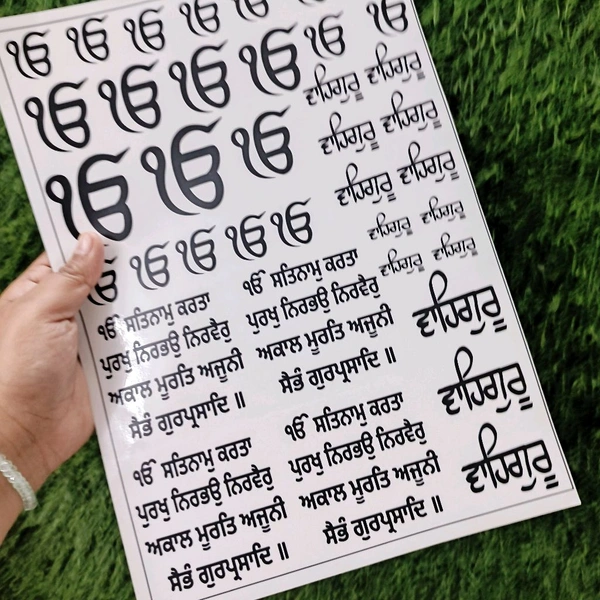 ੴ ੴ ੴ ੴ ੴ ੴ ੴ
ੴ ੴ ੴ ੴ
ੴ ੴ ੴ
ੴ ੴ ੴ ੴ ੴ
ਵਾਹਿਗੁਰੂ ਵਾਹਿਗੁਰੂ
ਵਾਹਿਗੁਰੂ ਵਾਹਿਗੁਰੂ
ਵਾਹਿਗੁਰੂ ਵਾਹਿਗੁਰੂ
ਵਾਹਿਗੁਰੂ ਵਾਹਿਗੁਰੂ
ਵਾਹਿਗੁਰੂ ਵਾਹਿਗੁਰੂ
ੴ ਸਤਿਨਾਮੁ ਕਰਤਾ
ਪੁਰਖੁ ਨਿਰਭਉ ਨਿਰਵੈਰੁ
ਅਕਾਲ ਮੂਰਤਿ ਅਜੂਨੀ
ਸੈਭੰ ਗੁਰਪ੍ਰਸਾਦਿ ॥
ੴ ਸਤਿਨਾਮੁ ਕਰਤਾ
ਪੁਰਖੁ ਨਿਰਭਉ ਨਿਰਵੈਰੁ
ਅਕਾਲ ਮੂਰਤਿ ਅਜੂਨੀ
ਸੈਭੰ ਗੁਰਪ੍ਰਸਾਦਿ ॥
ਵਾਹਿਗੁਰੂ
ਵਾਹਿਗੁਰੂ
ਵਾਹਿਗੁਰੂ
ੴ ਸਤਿਨਾਮੁ ਕਰਤਾ
ਪੁਰਖੁ ਨਿਰਭਉ ਨਿਰਵੈਰੁ
ਅਕਾਲ ਮੂਰਤਿ ਅਜੂਨੀ
ਸੈਭੰ ਗੁਰਪ੍ਰਸਾਦਿ ॥
ੴ ਸਤਿਨਾਮੁ ਕਰਤਾ
ਪੁਰਖੁ ਨਿਰਭਉ ਨਿਰਵੈਰੁ
ਅਕਾਲ ਮੂਰਤਿ ਅਜੂਨੀ
ਸੈਭੰ ਗੁਰਪ੍ਰਸਾਦਿ ॥